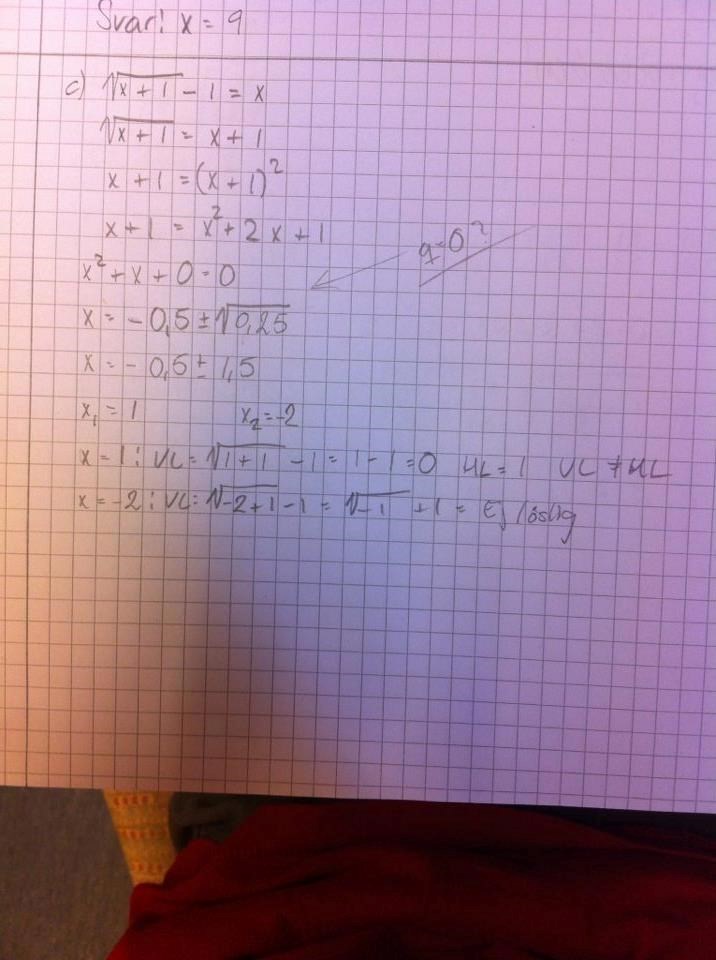 Svar! x = 9
c) √(x + 1) - 1 = x
√(x + 1) = x + 1
x + 1 = (x + 1)²
x + 1 = x² + 2x + 1
q=0?
x² + x + 0 = 0
x = - 0,5 ± √0,25
x = - 0,5 ± 1,5
x₁ = 1 x₂ = -2
x = 1: VL = √(1 + 1) - 1 = 1 - 1 = 0 HL = 1 VL ≠ HL
x = -2: VL: √(-2 + 1) - 1 = √-1 + 1 = Ej löslig